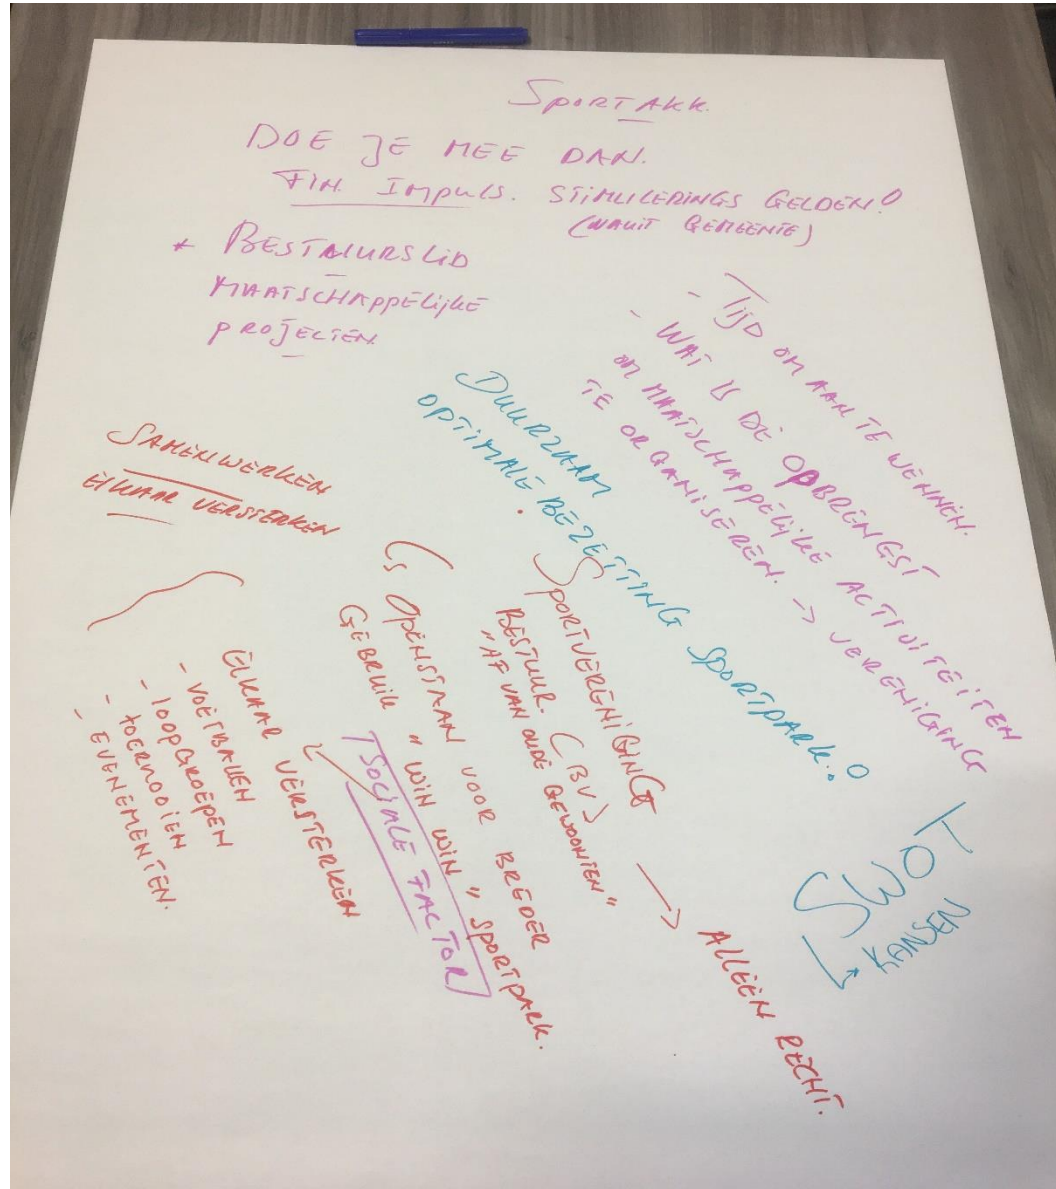 SPORTAKK.
DOE JE MEE DAN.
FIN. IMPULS. STIMULERINGS GELDEN!
(VANUIT GEMEENTE)
* BESTUURSLID
MAATSCHAPPELIJKE
PROJECTEN
- TIJD OM AAN TE WENNEN.
- WAT IS DE OPBRENGST
OM MAATSCHAPPELIJKE ACTIVITEITEN
TE ORGANISEREN. -> VERENIGING
DUURZAAM
OPTIMALE BEZETTING SPORTPARK..!
SAMENWERKEN
ELKAAR VERSTERKEN
SPORTVERENIGING
BESTUUR. (BV)
"AF VAN OUDE GEWOONTEN"
-> ALLEEN RECHT.
OPENSTAAN VOOR BREDER
GEBRUIK "WIN WIN" SPORTPARK.
SOCIALE FACTOR
ELKAAR VERSTERKEN
- VOETBALLEN
- LOOPGROEPEN
- TOERNOOIEN
- EVENEMENTEN.
KANSEN